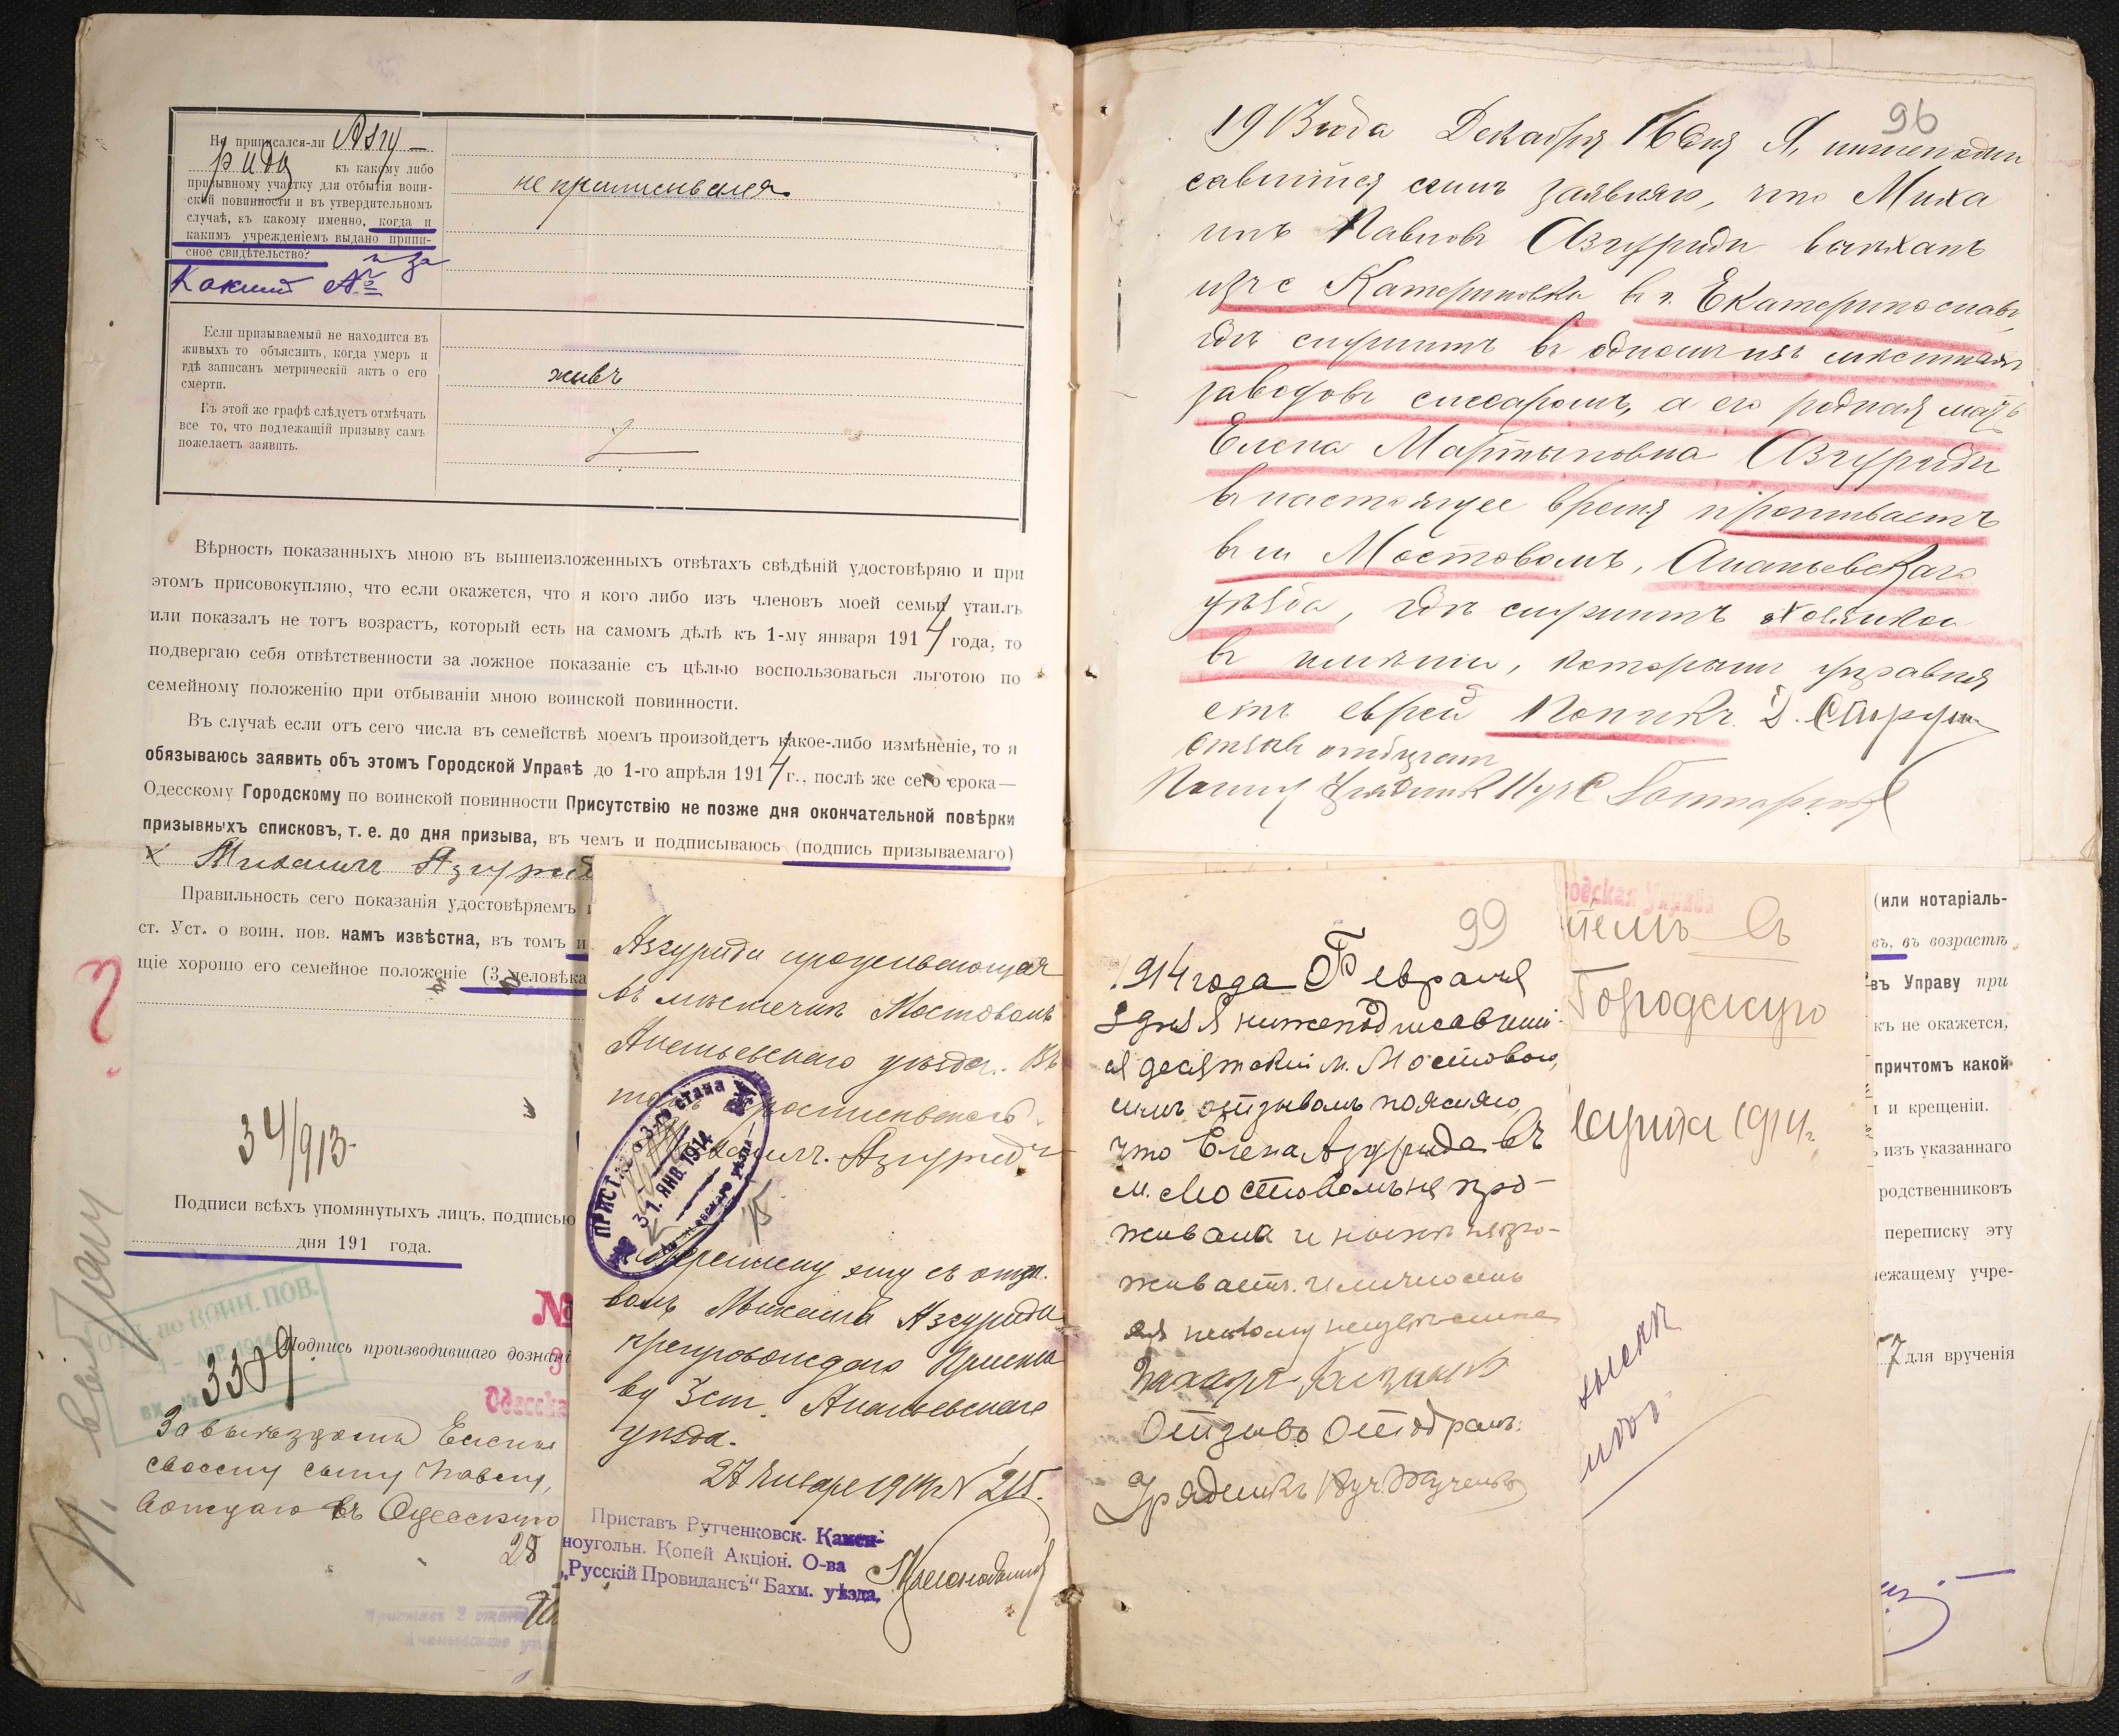 Не приписался-ли Азгу-
риди къ какому либо
призывному участку для отбытія воин-
ской повинности и въ утвердительномъ
случаѣ, къ какому именно, когда и
какимъ учрежденіемъ выдано припи-
сное свидѣтельство? и за
Какимъ №
не приписывался
Если призываемый не находится въ
живыхъ то объяснить, когда умеръ и
гдѣ записанъ метрическій актъ о его
смерти.
Въ этой же графѣ слѣдуетъ отмѣчать
все то, что подлежащій призыву самъ
пожелаетъ заявить.
живъ
Вѣрность показанныхъ мною въ вышеизложенныхъ отвѣтахъ свѣдѣній удостовѣряю и при
этомъ присовокупляю, что если окажется, что я кого либо изъ членовъ моей семьи утаилъ
или показалъ не тотъ возрастъ, который есть на самомъ дѣлѣ къ 1-му января 1914 года, то
подвергаю себя отвѣтственности за ложное показаніе съ цѣлью воспользоваться льготою по
семейному положенію при отбываніи мною воинской повинности.
Въ случаѣ если отъ сего числа въ семействѣ моемъ произойдетъ какое-либо измѣненіе, то я
обязываюсь заявить объ этомъ Городской Управѣ до 1-го апрѣля 1914 г., послѣ же сего срока—
Одесскому Городскому по воинской повинности Присутствію не позже дня окончательной повѣрки
призывныхъ списковъ, т. е. до дня призыва, въ чемъ и подписываюсь (подпись призываемаго)
х Михаилъ Азгурид
Правильность сего показанія удостовѣряемъ
ст. Уст. о воин. пов. намъ извѣстна, въ томъ и
щіе хорошо его семейное положеніе (3 человѣка
?
34/913
Подписи всѣхъ упомянутыхъ лицъ, подписью
дня 191 года.
№
ОТД. по ВОИН. ПОВ.
3309
Подпись производившаго дознані
Одесска
За выѣздомъ Елены
своему сыну Павлу,
вождаю въ Одесскую
28
Приставъ 2 стана
Ананьевскаго у
Азгуриди проживающая
въ мѣстечкѣ Мостовомъ
Ананьевскаго уѣзда. Въ
томъ росписываюсь
Михаилъ Азгуриди
ПРИСТАВЪ 3-го стана
31. ЯНВ. 1914
Ананьевскаго уѣзда
Переписку эту съ отзы-
вомъ Михаила Азгуриди
препровождаю Приста
ву 3 ст. Ананьевскаго
уѣзда.
27 Января 1914 г N 215.
Приставъ Рутченковск. Камен-
ноугольн. Копей Акціон. О-ва
„Русскій Провидансъ“ Бахм. уѣзда,
96
1913 года Декабря 16 дня Я, нижеподпи
савшійся симъ заявляю, что Миха
илъ Павловъ Азгуриди выѣхалъ
изъ с Катериновки въ г. Екатеринославъ,
гдѣ служитъ въ одномъ изъ мѣстныхъ
заводовъ слесаромъ, а его родная мать
Елена Мартыновна Азгуриди
въ настоящее время проживаетъ
въ м Мостовомъ, Ананьевскаго
уѣзда, гдѣ служитъ
въ имѣніи, которымъ управля
етъ еврей Копикъ. Д.
Отзывъ отобралъ
99
1914 года Февраля
3 дня Я нижеподписавший-
ся десятский м. Мостового,
симъ отзывомъ поясняю,
что Елена Азгуриди въ
м. Мостовомъ не про-
живала и ныне не про-
живаетъ. и личность
ея никому неизвѣстна
Отзывъ Отобралъ:
Урядникъ
одская Управа
телъ въ
Городскую
1914 г.
(или нотаріаль-
въ, въ возрастѣ
въ Управу при
къ не окажется,
причтомъ какой
и крещеніи.
изъ указаннаго
родственниковъ
переписку эту
лежащему учре-
для врученія